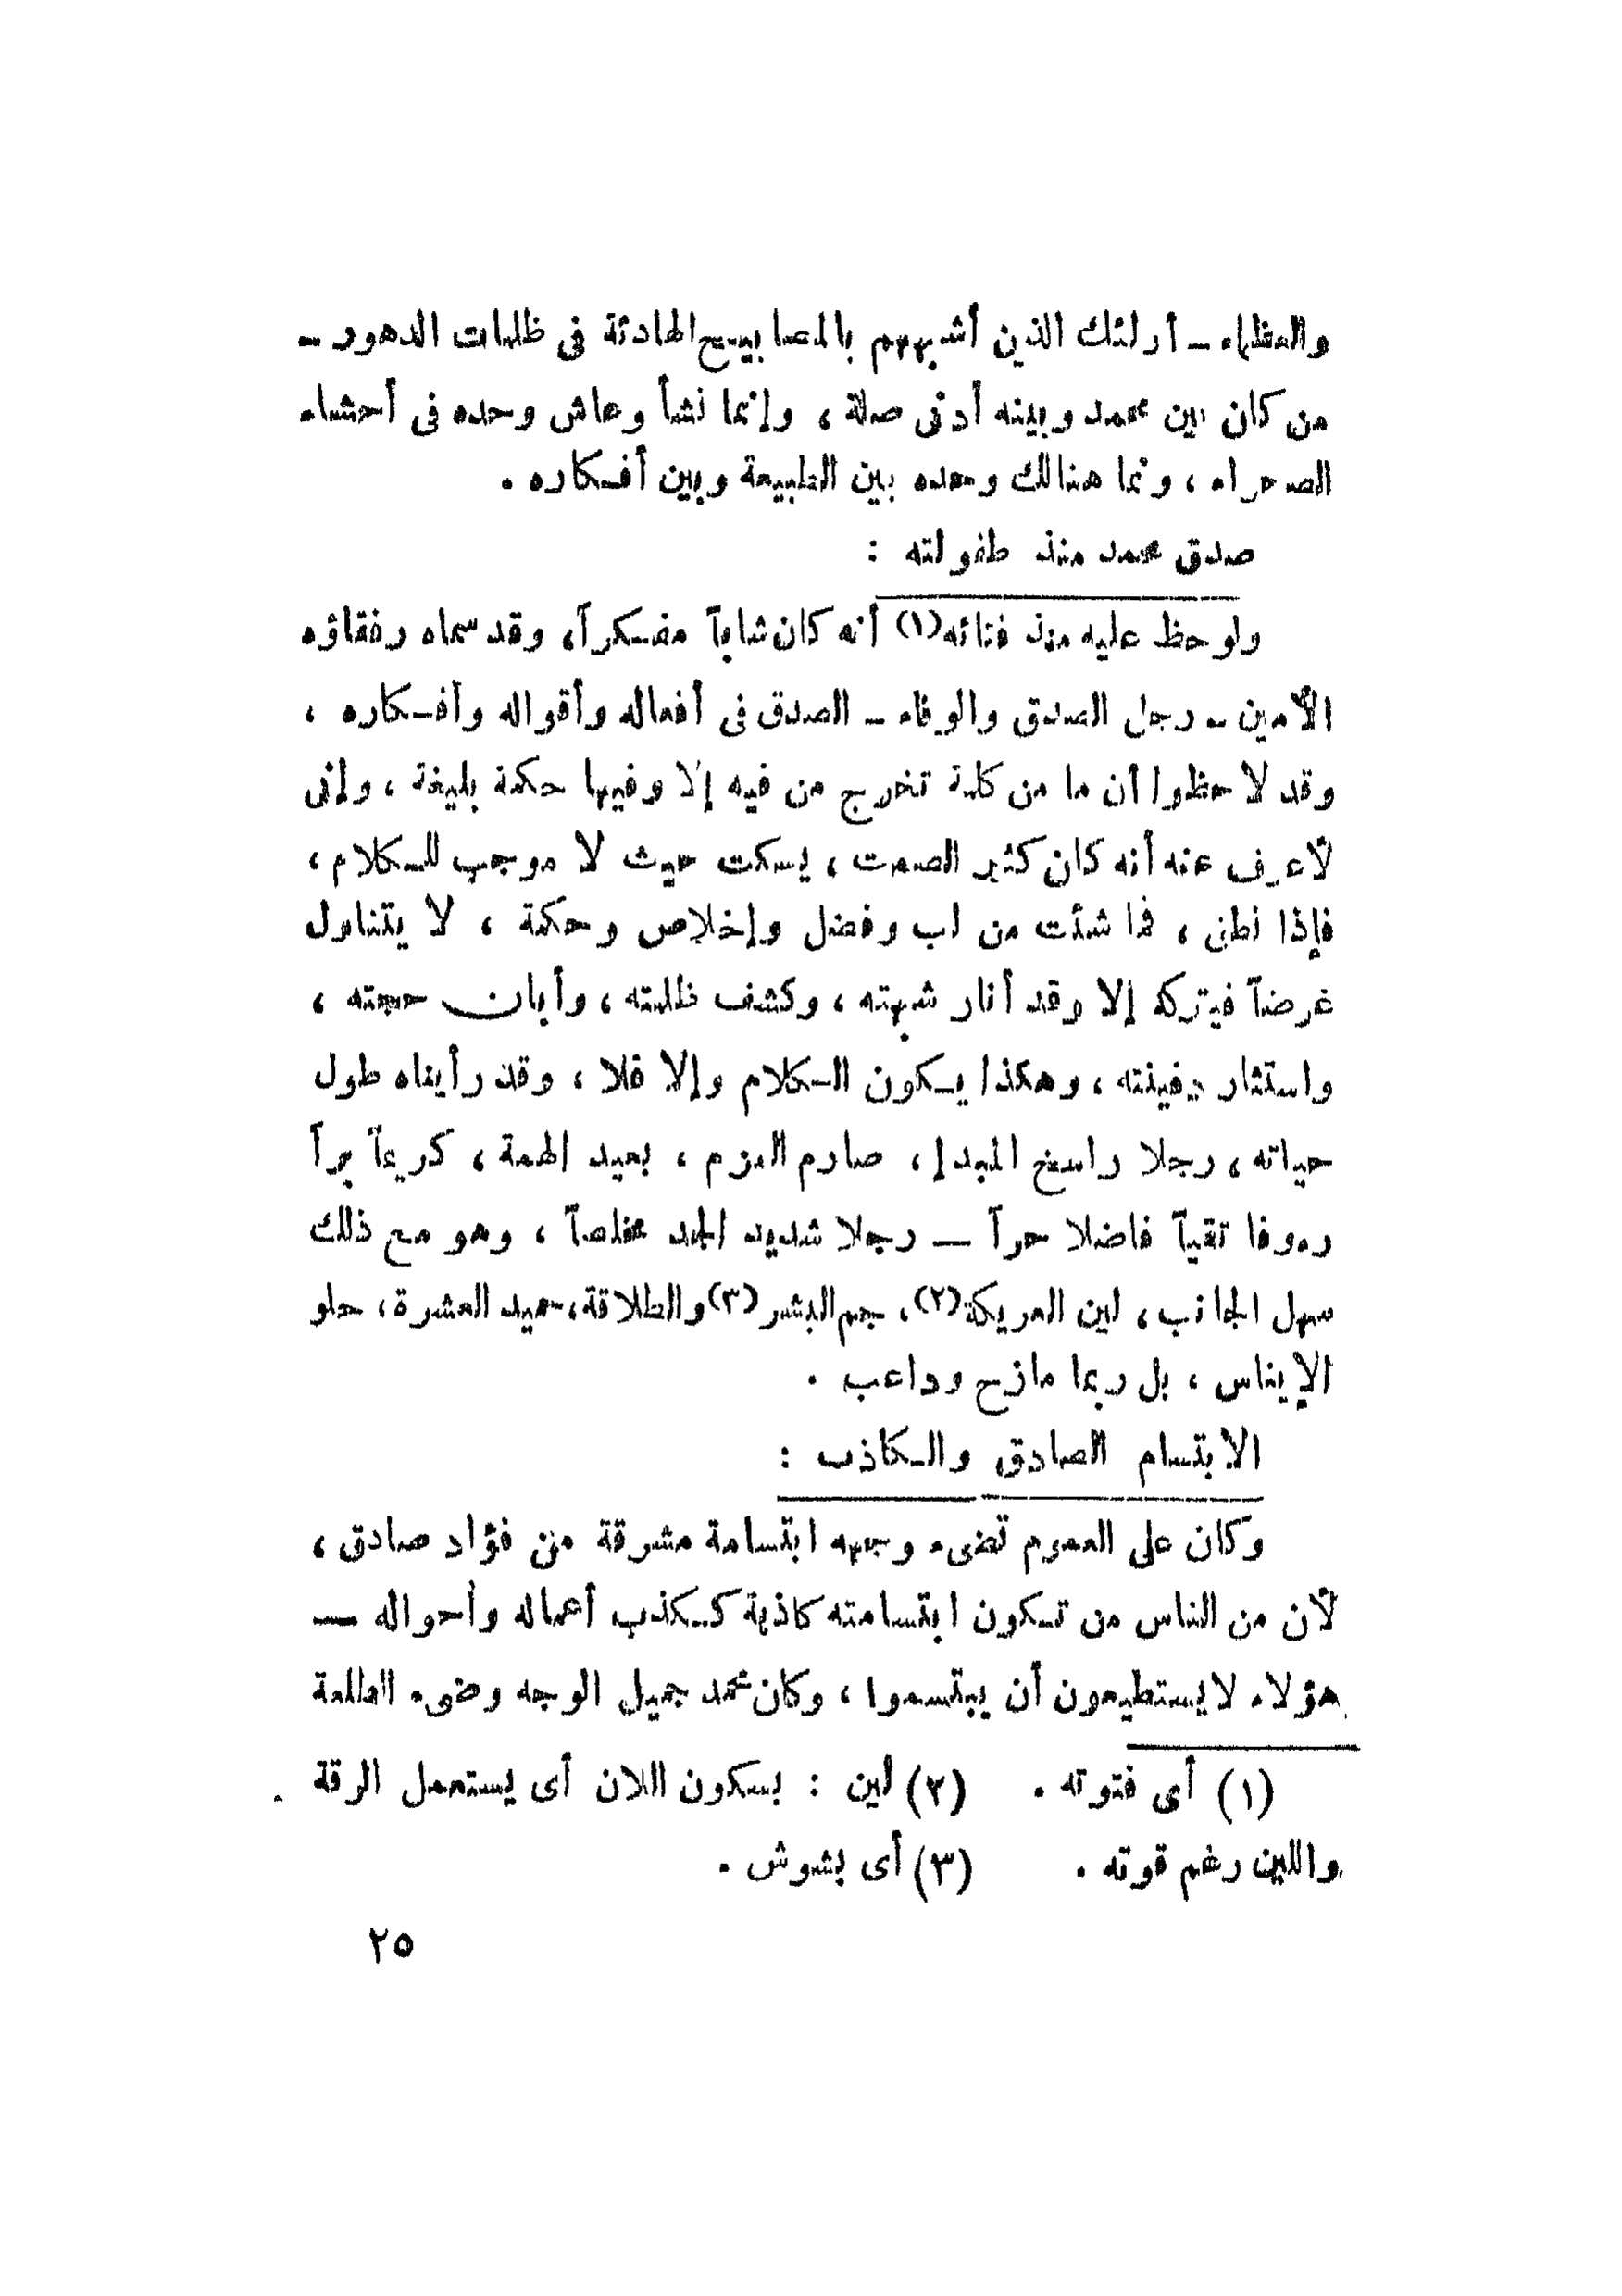 والعظماء ــ أولئك الذين أشبههم بالمصابيح الهادئة فى ظلمات الدهور ــ
من كان بين محمد وبينه أدنى صلة ، وإنما نشأ وعاش وحده فى أحشاء
الصحراء ، ونما هنالك وحده بين الطبيعة وبين أفكاره .
صدق محمد منذ طفولته :
ولوحظ عليه منذ فتائه (١) أنه كان شاباً مفكراً، وقد سماه رفقاؤه
الأمين ــ رجل الصدق والوفاء ــ الصدق فى أفعاله وأقواله وأفكاره ،
وقد لاحظوا أن ما من كلمة تخرج من فيه إلا وفيها حكمة بليغة ، وإنى
لأعرف عنه أنه كان كثير الصمت ، يسكت حيث لا موجب للكلام ،
فإذا نطق ، فما شئت من لب وفضل وإخلاص وحكمة ، لا يتناول
غرضاً فيتركه إلا وقد أنار شبهته ، وكشف ظلمته ، وأبان حجته ،
واستثار دفينته ، وهكذا يكون الكلام وإلا فلا ، وقد رأيناه طول
حياته ، رجلا راسخ المبدإ ، صارم العزم ، بعيد الهمة ، كريماً براً
رءوفا تقياً فاضلا حراً ــ رجلا شديد الجد مخلصاً ، وهو مع ذلك
سهل الجانب ، لين العريكة (٢) ، جم البشر (٣) والطلاقة ، حميد العشرة ، حلو
الإيناس ، بل ربما مازح وداعب .
الابتسام الصادق والكاذب :
وكان على العموم تضىء وجهه ابتسامة مشرقة من فؤاد صادق ،
لأن من الناس من تكون ابتسامته كاذبة ككذب أعماله وأحواله ــ
هؤلاء لا يستطيعون أن يبتسموا ، وكان محمد جميل الوجه وضىء الطلعة
(١) أى فتوته . (٢) لين : بسكون اللان أى يستعمل الرقة
واللين رغم قوته . (٣) أى بشوش .
٢٥